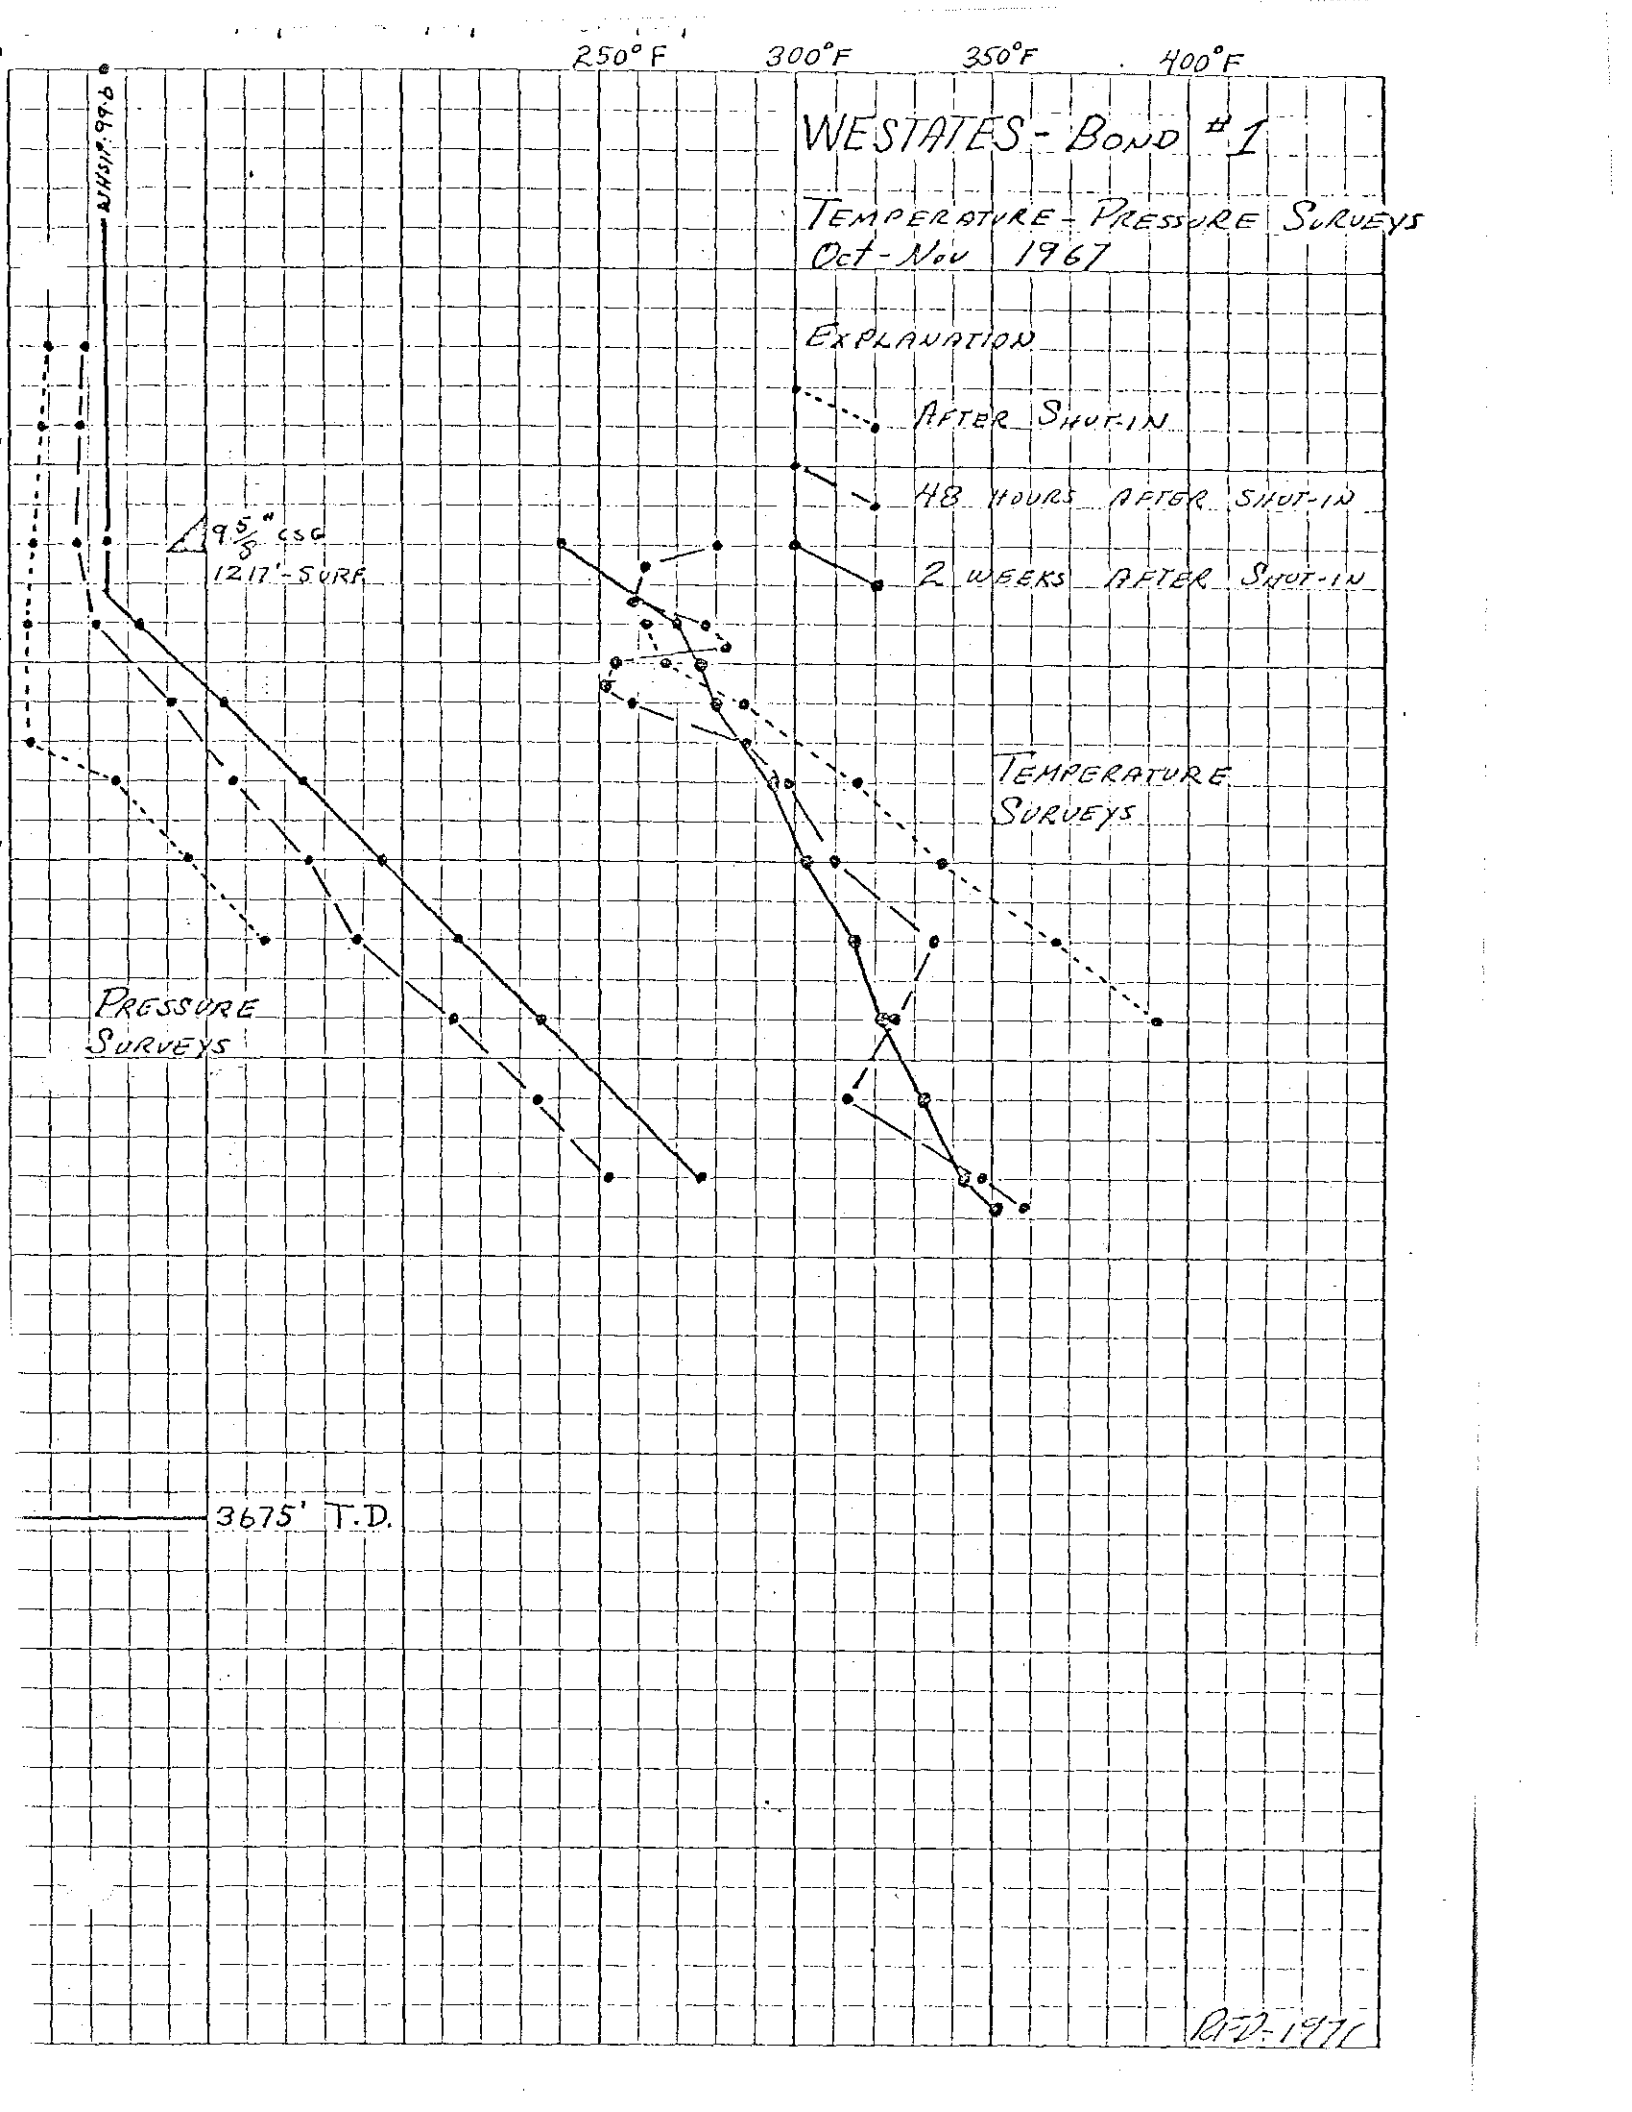 250°F 300°F 350°F 400°F
WHSIP. 99.6
WESTATES - BOND #1
TEMPERATURE - PRESSURE SURVEYS
Oct - Nov 1967
EXPLANATION
AFTER SHUT-IN
48 HOURS AFTER SHUT-IN
2 WEEKS AFTER SHUT-IN
9 5/8" CSG
1217' - SURF
TEMPERATURE
SURVEYS
PRESSURE
SURVEYS
3675' T.D.